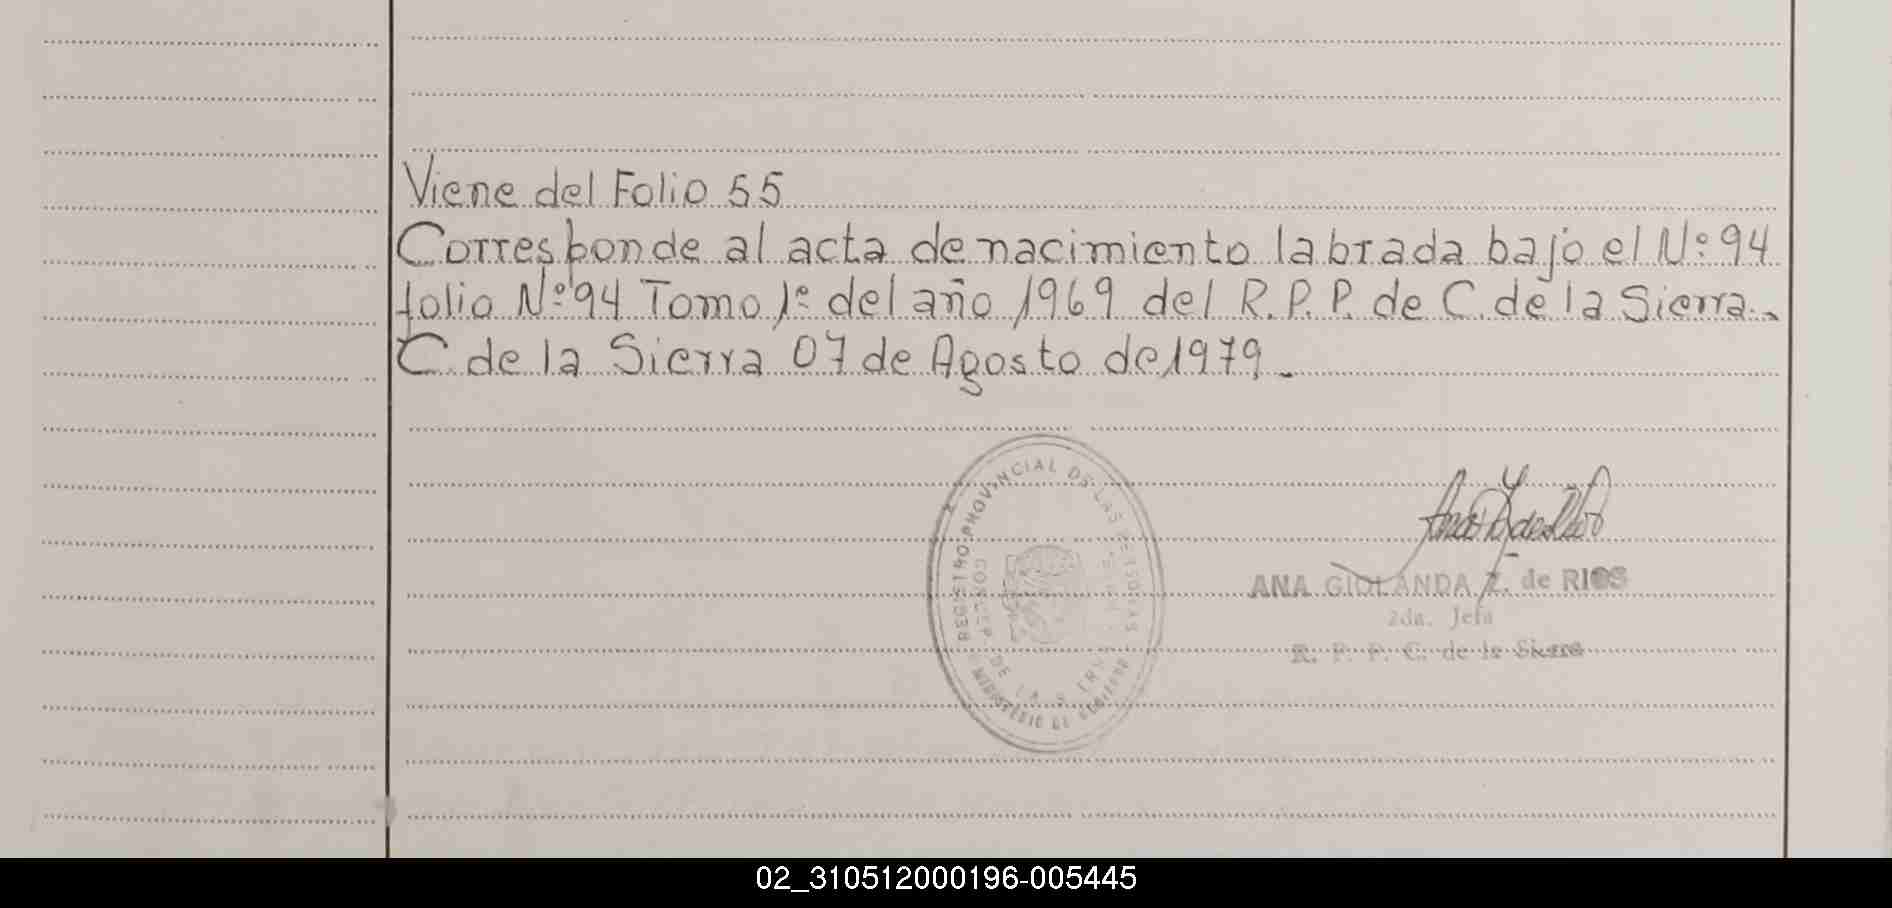 Viene del Folio 55
Corresponde al acta de nacimiento labrada bajo el Nº 94
folio Nº 94 Tomo 1º del año 1969 del R.P.P. de C. de la Sierra.-
C. de la Sierra 07 de Agosto de 1979.-
REGISTRO PROVINCIAL DE LAS PERSONAS
CONCEP. DE LA SIERRA
MINISTERIO DE GOBIERNO
ANA GIOLANDA Z. de RIOS
2da. Jefa
R. P. P. C. de la Sierra
02_310512000196-005445